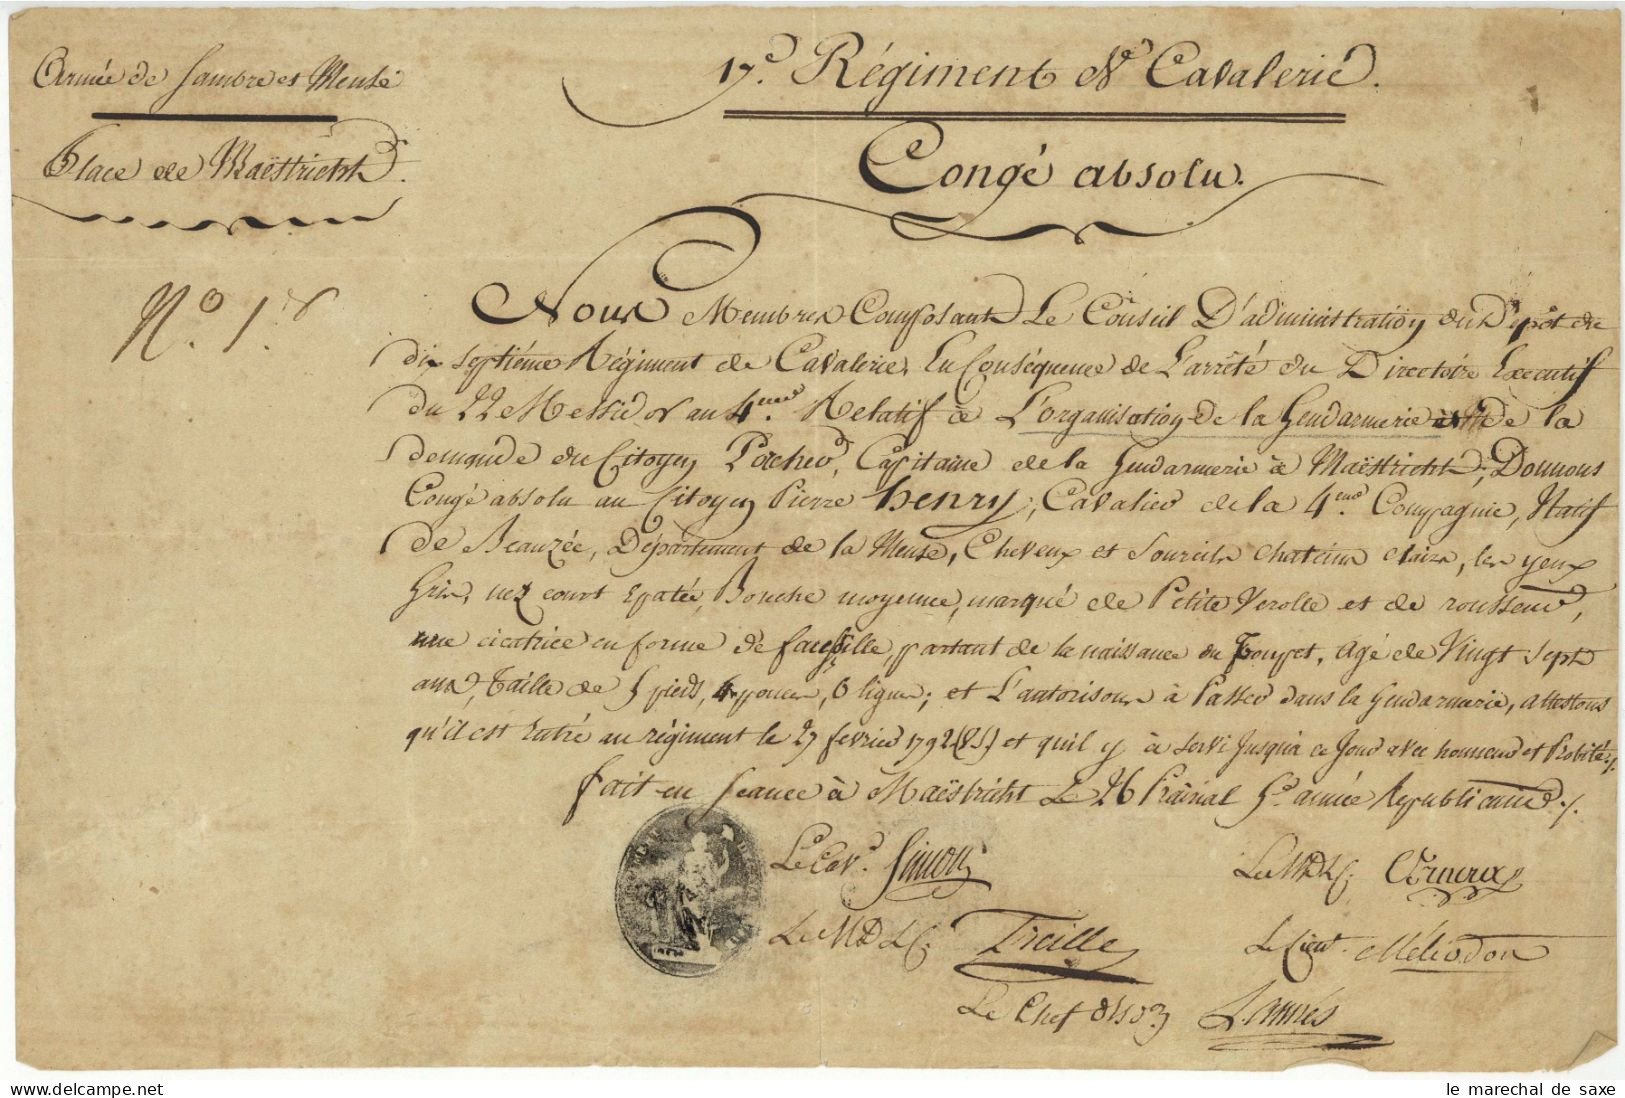 Armée de Sambre et Meuse
Place de Maëstricht.
N.º 1.er
17.e Régiment de Cavalerie.
Congé absolu.
Nous Membres Composant Le Conseil D'administration du Dépôt du
dix septiéme Régiment de Cavalerie, En Conséquence de L'arrêté du Directoire Executif
du 22 Messidor an 4.eme Relatif à L'organisation de la Gendarmerie de la
demande du Citoyen Pacheu, Capitaine de la Gendarmerie à Maëstricht; Donnons
Congé absolu au Citoyen Pierre henry; Cavalier de la 4.eme Compagnie, Natif
de Beauzée, Département de la Meuse, Cheveux et Sourcils chatains clairs, les yeux
Gris, nez court Epatée, Bouche moyenne, marqué de Petite Verolle et de rousseur,
une cicatrice en forme de faucille, partant de la naissance du Toupet, agé de Vingt sept
ans, Taille de 5 pieds, 4 pouces, 6 lignes; et L'autorisons à Passer dans la Gendarmerie, attestons
qu'il est Entré au régiment le 27 fevrier 1792 (V.S.) et qu'il y à servi Jusqu'à ce Jour avec honneur et Probité./.
fait en Seance à Maëstricht Le 26 Prairial 5.e année Republicaine./.
Le Cav.r Simon
Le MDLG;
Le MDLG; Treille
Le Lieut. Méliodon
Le Chef d'Esd.on Lannes
le marechal de saxe